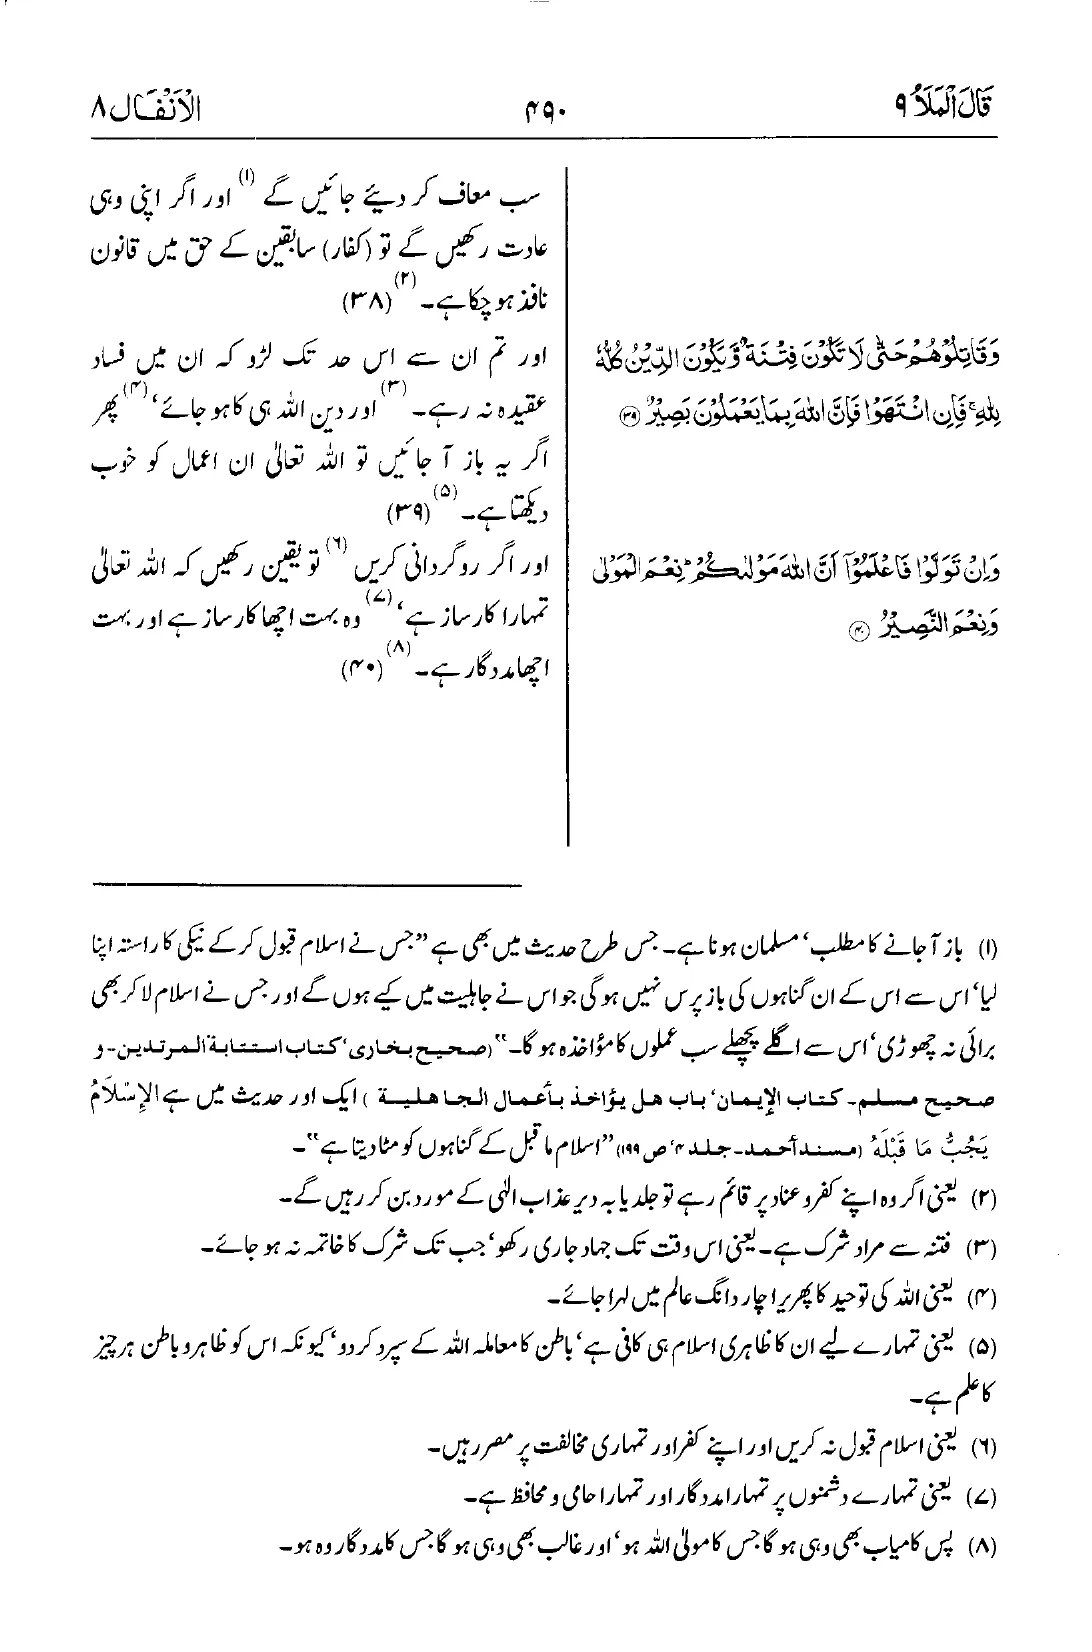 قَالَ الْمَلَأُ ۹
۴۹۰
الْأَنْفَال ۸
سب معاف کر دیئے جائیں گے (۱) اور اگر اپنی وہی
عادت رکھیں گے تو (کفار) سابقین کے حق میں قانون
نافذ ہو چکا ہے۔ (۲) (۳۸)
وَقَاتِلُوْهُمْ حَتّٰى لَا تَكُوْنَ فِتْنَةٌ وَّيَكُوْنَ الدِّيْنُ كُلُّهٗ
لِلّٰهِ ۚ فَاِنِ انْتَهَوْا فَاِنَّ اللّٰهَ بِمَا يَعْمَلُوْنَ بَصِيْرٌ ۝۳۹
اور تم ان سے اس حد تک لڑو کہ ان میں فساد
عقیدہ نہ رہے۔ (۳) اور دین اللہ ہی کا ہو جائے، (۴) پھر
اگر یہ باز آ جائیں تو اللہ تعالیٰ ان اعمال کو خوب
دیکھتا ہے۔ (۵) (۳۹)
وَاِنْ تَوَلَّوْا فَاعْلَمُوْٓا اَنَّ اللّٰهَ مَوْلٰىكُمْ ۭ نِعْمَ الْمَوْلٰى
وَنِعْمَ النَّصِيْرُ ۝۴۰
اور اگر روگردانی کریں (۶) تو یقین رکھیں کہ اللہ تعالیٰ
تمہارا کارساز ہے، (۷) وہ بہت اچھا کارساز ہے اور بہت
اچھا مددگار ہے۔ (۸) (۴۰)
(۱) باز آجانے کا مطلب، مسلمان ہونا ہے۔ جس طرح حدیث میں بھی ہے ”جس نے اسلام قبول کر کے نیکی کا راستہ اپنا
لیا، اس سے اس کے ان گناہوں کی باز پرس نہیں ہوگی جو اس نے جاہلیت میں کیے ہوں گے اور جس نے اسلام لا کر بھی
برائی نہ چھوڑی، اس سے اگلے پچھلے سب عملوں کا مؤاخذہ ہو گا۔“ (صحیح بخاری، کتاب استتابة المرتدین۔ و
صحیح مسلم۔ کتاب الإیمان، باب هل یؤاخذ بأعمال الجاهلیة) ایک اور حدیث میں ہے الإِسْلَامُ
يَجُبُّ مَا قَبْلَهُ (مسند أحمد۔ جلد ۴، ص ۱۹۹) ”اسلام ماقبل کے گناہوں کو مٹا دیتا ہے“۔
(۲) یعنی اگر وہ اپنے کفر و عناد پر قائم رہے تو جلد یا بہ دیر عذاب الٰہی کے مورد بن کر رہیں گے۔
(۳) فتنہ سے مراد شرک ہے۔ یعنی اس وقت تک جہاد جاری رکھو، جب تک شرک کا خاتمہ نہ ہو جائے۔
(۴) یعنی اللہ کی توحید کا پھریرا چار دانگ عالم میں لہرا جائے۔
(۵) یعنی تمہارے لیے ان کا ظاہری اسلام ہی کافی ہے، باطن کا معاملہ اللہ کے سپرد کر دو، کیونکہ اس کو ظاہر و باطن ہر چیز
کا علم ہے۔
(۶) یعنی اسلام قبول نہ کریں اور اپنے کفر اور تمہاری مخالفت پر مصر رہیں۔
(۷) یعنی تمہارے دشمنوں پر تمہارا مددگار اور تمہارا حامی و محافظ ہے۔
(۸) پس کامیاب بھی وہی ہو گا جس کا مولیٰ اللہ ہو، اور غالب بھی وہی ہو گا جس کا مددگار وہ ہو۔